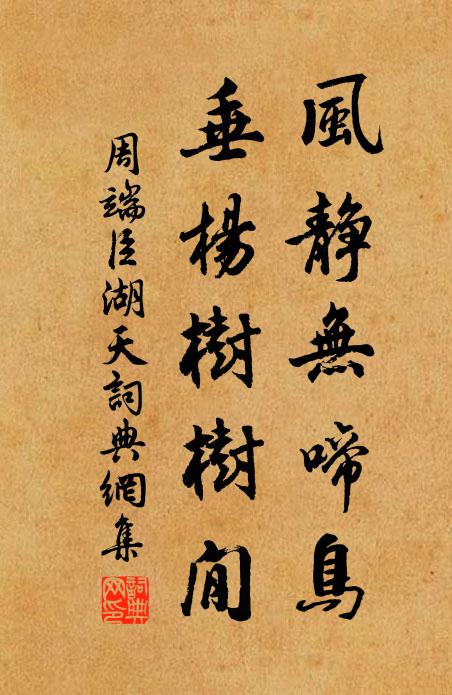 風靜無啼鳥
垂楊樹樹閒
周端臣湖天詞典網集
詞典網印